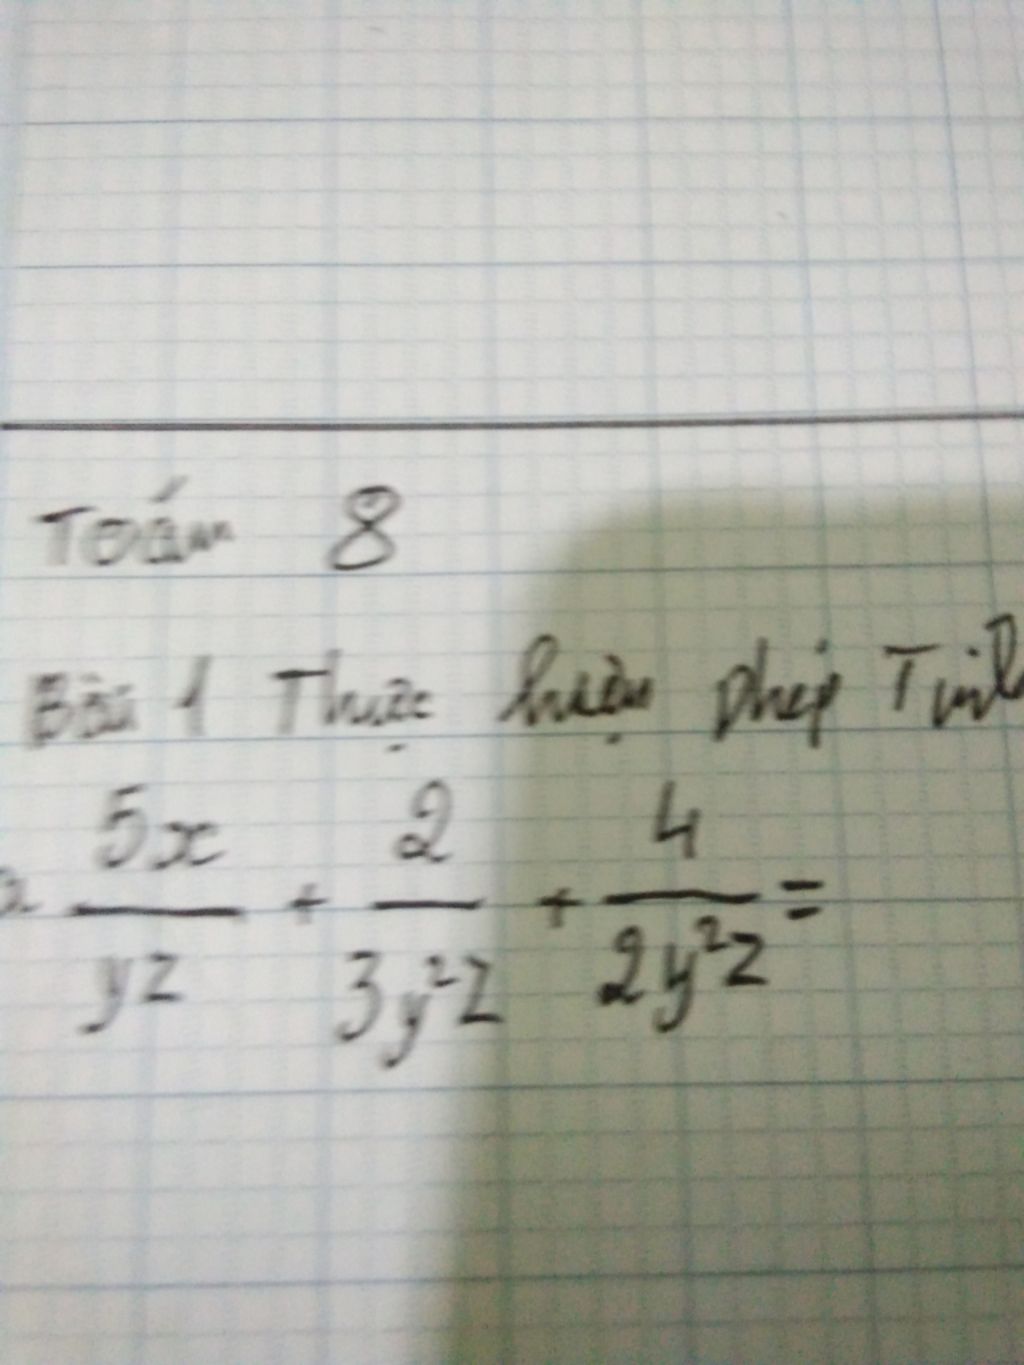 Toán 8
Bài 1 Thực hiện phép Tính
a. 5x/yz + 2/3y²z + 4/2y²z =